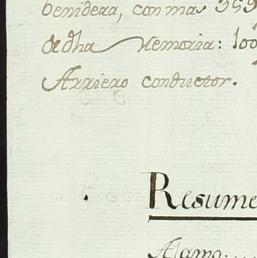 benidera, con mas 359
de dha Memoria: 100
Arriero conductor.
Resume
Alamo.....